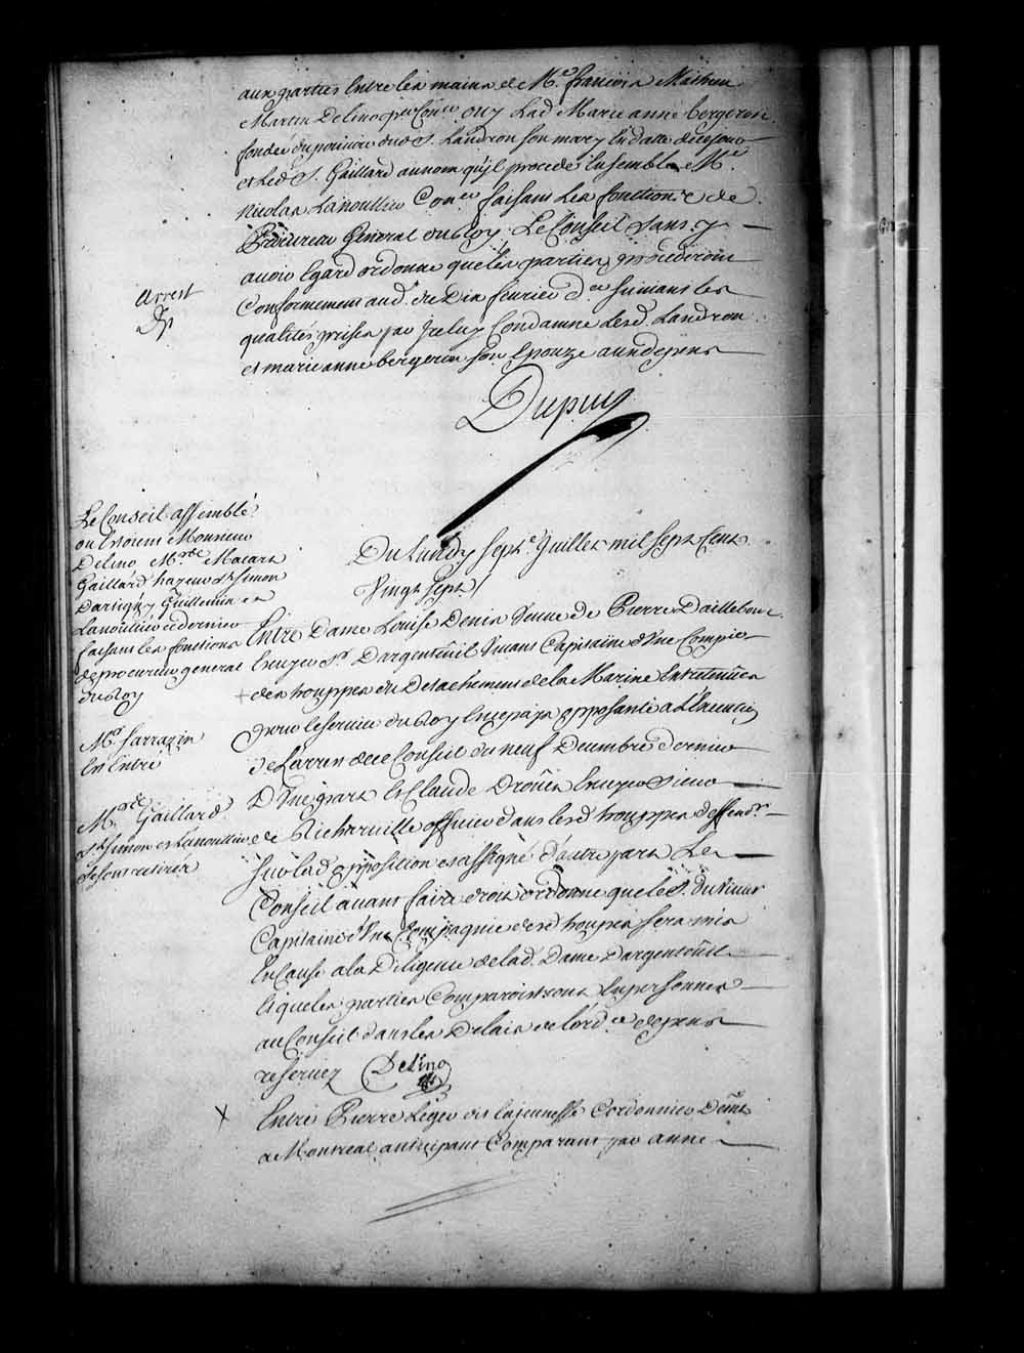 aux parties Entre les mains de Me. francois Mathieu
Martin Delino per Coner. ouy Lad Marie anne bergeron
fondée du pouvoir dud S. Landron son mary En datte de ce jour
et Led S. Gaillard au nom qu'il procede Ensemble Me
Nicolas Lanoullier Coner faisant les fonctions de
Procureur General du Roy Le Conseil sans y
avoir Egard ordonne que les parties procederont
Conformement aud. du Dix fevrier der suivant les
qualités prises par Iceluy Condamne Lesd. Landron
et marie anne bergeron son Epouze aux depens
arrest
Dupuy
Le Conseil assemblé
ou Estoient Monsieur
Delino Mrs Macart
Gaillard hazeur St Simon
Dartigny Guillemin et
Lanoullier ce dernier
faisant les fonctions
de procureur general
du Roy
Mr Sarrazin
Est Entré
Mrs Gaillard
St Simon et Lanoullier
se sont retirés
Du Lundy sept.e Juillet mil sept Cent
Vingt sept /
Entre Dame Louise Denis veuve de Pierre Dailleboust
Ecuyer Sr. Dargenteüil vivant Capitaine d'une Compie
des trouppes du Détachement de la Marine Entretenües
pour le service du Roy En ce païs opposante a L'Execution
de L'arrest de ce Conseil du neuf Decembre dernier
D'une part Et Claude Droüet Ecuyer Sieur
de Richarville officier dans lesd trouppes deffendr
sur lad opposition et assigné d'autre part Le
Conseil avant faire droit ordonne que le S. duvivier
Capitaine d'une Compagnie desd troupes sera mis
En Cause a la Diligence de lad. Dame Dargenteüil
lesquelles parties Comparoistront En personnes
au Conseil dans les Delais de l'ord.ce depens
reservez Delino
X Entre Pierre Leger dit Lajeunesse Cordonnier Demt
a Montreal anticipant Comparant par anne